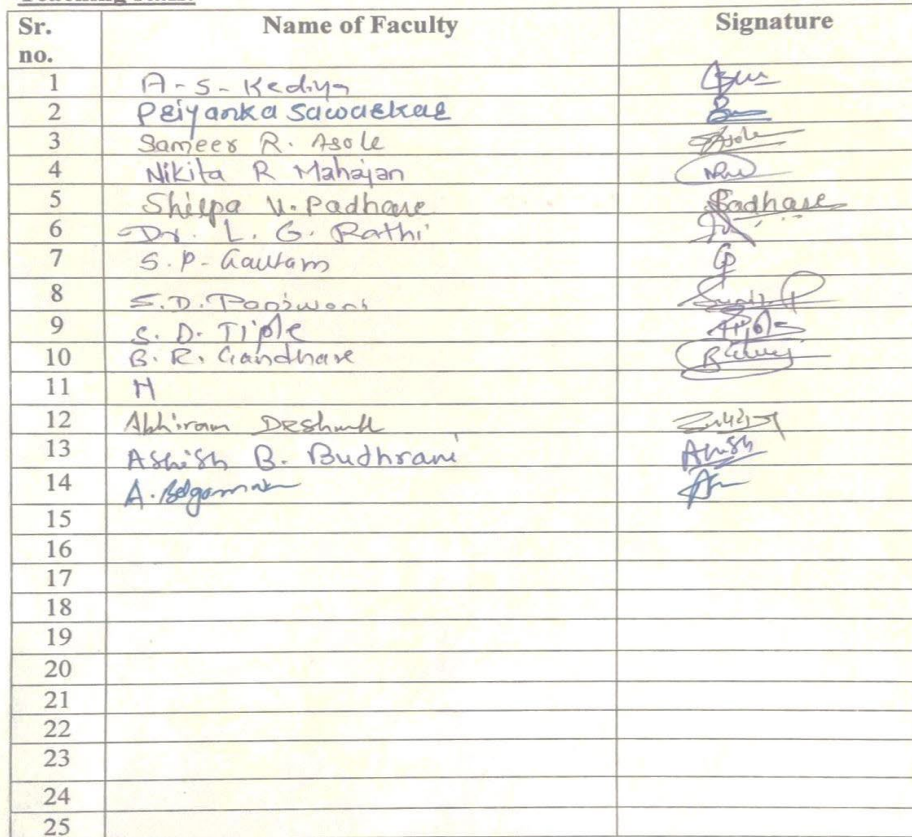 Sr. no. Name of Faculty Signature
1 A-S-Kediya
2 Priyanka Sawarkar
3 Sameer R. Asole Asole
4 Nikita R Mahajan
5 Shilpa V. Padhare Padhare
6 Dr. L. G. Rathi
7 S.P-Gautam
8 S.D. Panjwani
9 S. D. Tiple
10 B. R. Gandhare
11
12 Abhiram Deshmukh
13 Ashish B. Budhrani Ahish
14 A.
15
16
17
18
19
20
21
22
23
24
25